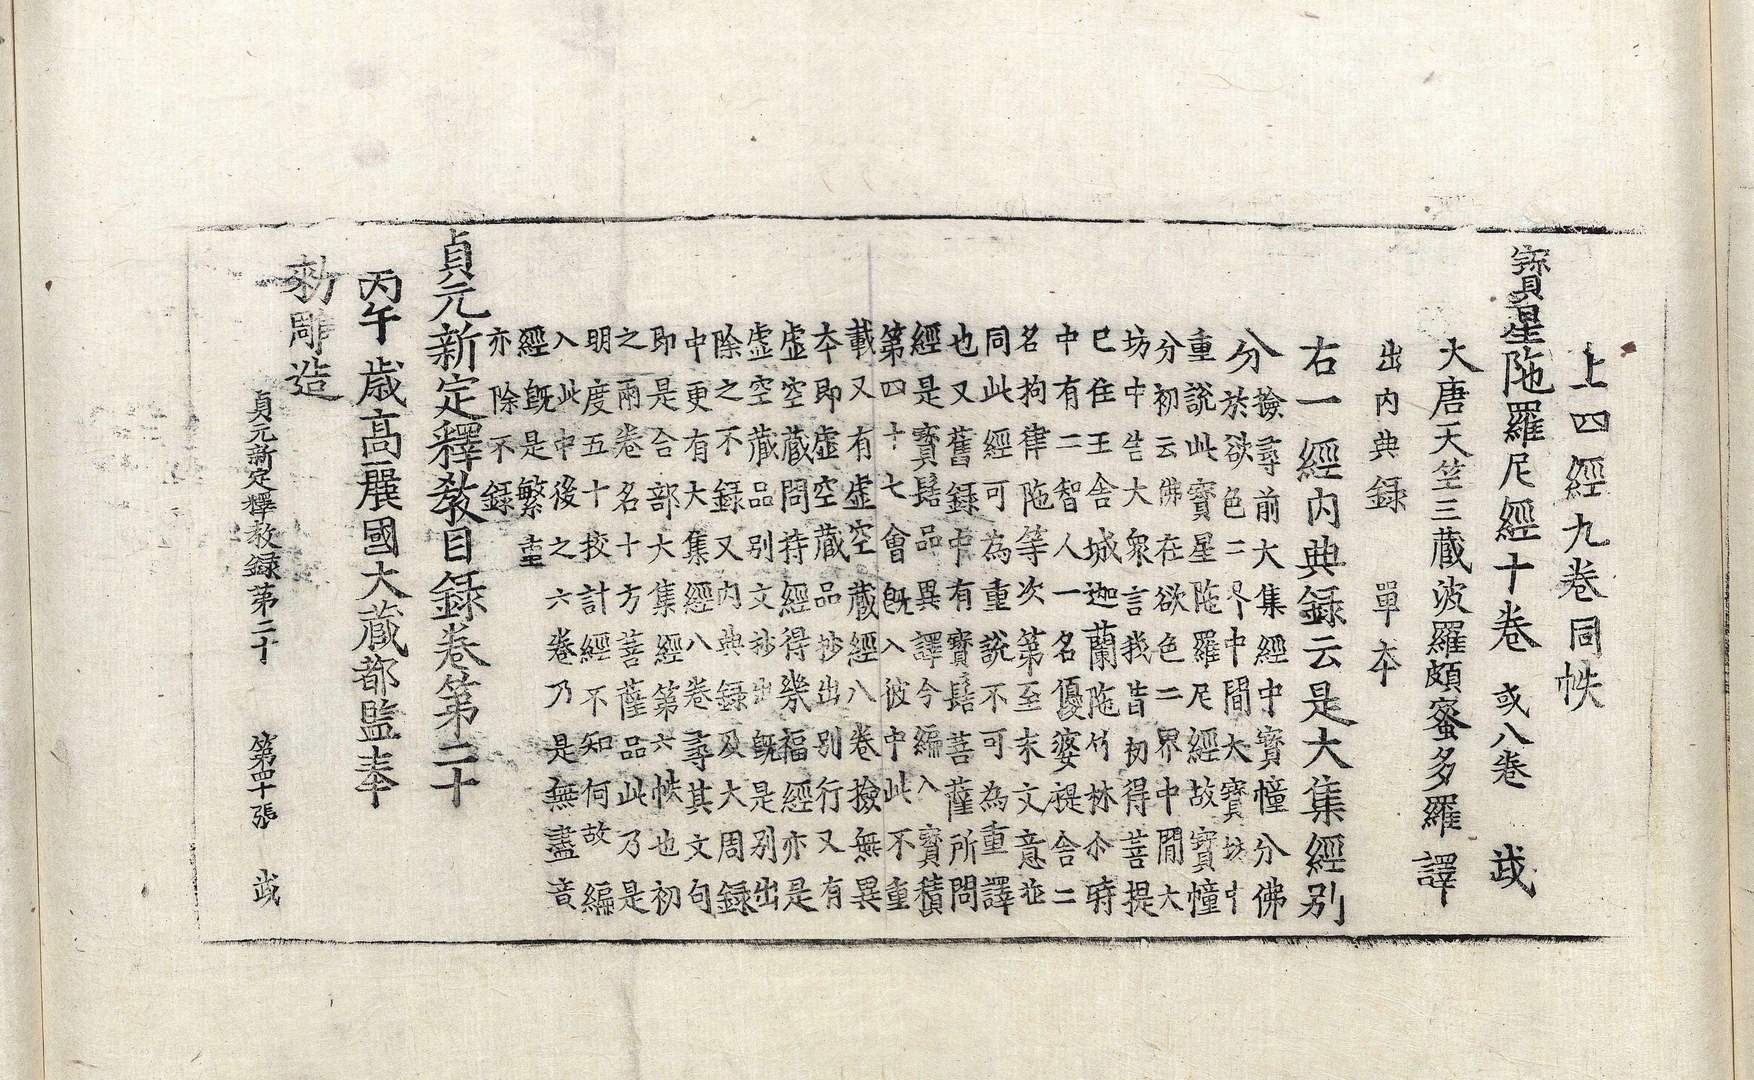 上四經九卷同帙
寳星陁羅尼經十卷 或八卷 㢤
大唐天竺三藏波羅頗蜜多羅 譯
出內典録 單夲
右一經內典録云是大集經别
分 撿尋前大集經中寳幢分佛
於欲色二界中間大寳坊中
重說此寳星陁羅尼經故寳幢
分初云佛在欲色二界中間大
坊中告大衆言我昔初得菩提
已住王舍城迦蘭陁竹林尒時
中有二智人一名優婆提舍二
名拘律陁等次第至末文意並
同此經可為重說不可為重譯
也又舊録中有寳髻菩薩所問
經是寳髻品異譯今編入寳積
第四十七會旣入彼中此不重
載又有虛空藏經八卷撿無異
夲即虛空藏品抄出别行又有
虛空藏問持經得幾福經亦是
虛空藏品别文抄出旣是别出
除之不録又內典録及大周録
中更有大集經八卷尋其文句
即是合部大集經第六帙也初
之兩卷名十方菩薩品此乃是
明度五十挍計經不知何故編
入此中後之六卷乃是無盡意
經旣是繁重
亦除不録
貞元新定釋敎目録卷第二十
丙午歲高麗國大藏都監奉
勑雕造
貞元新定釋教録第二十 第四十張 㢤